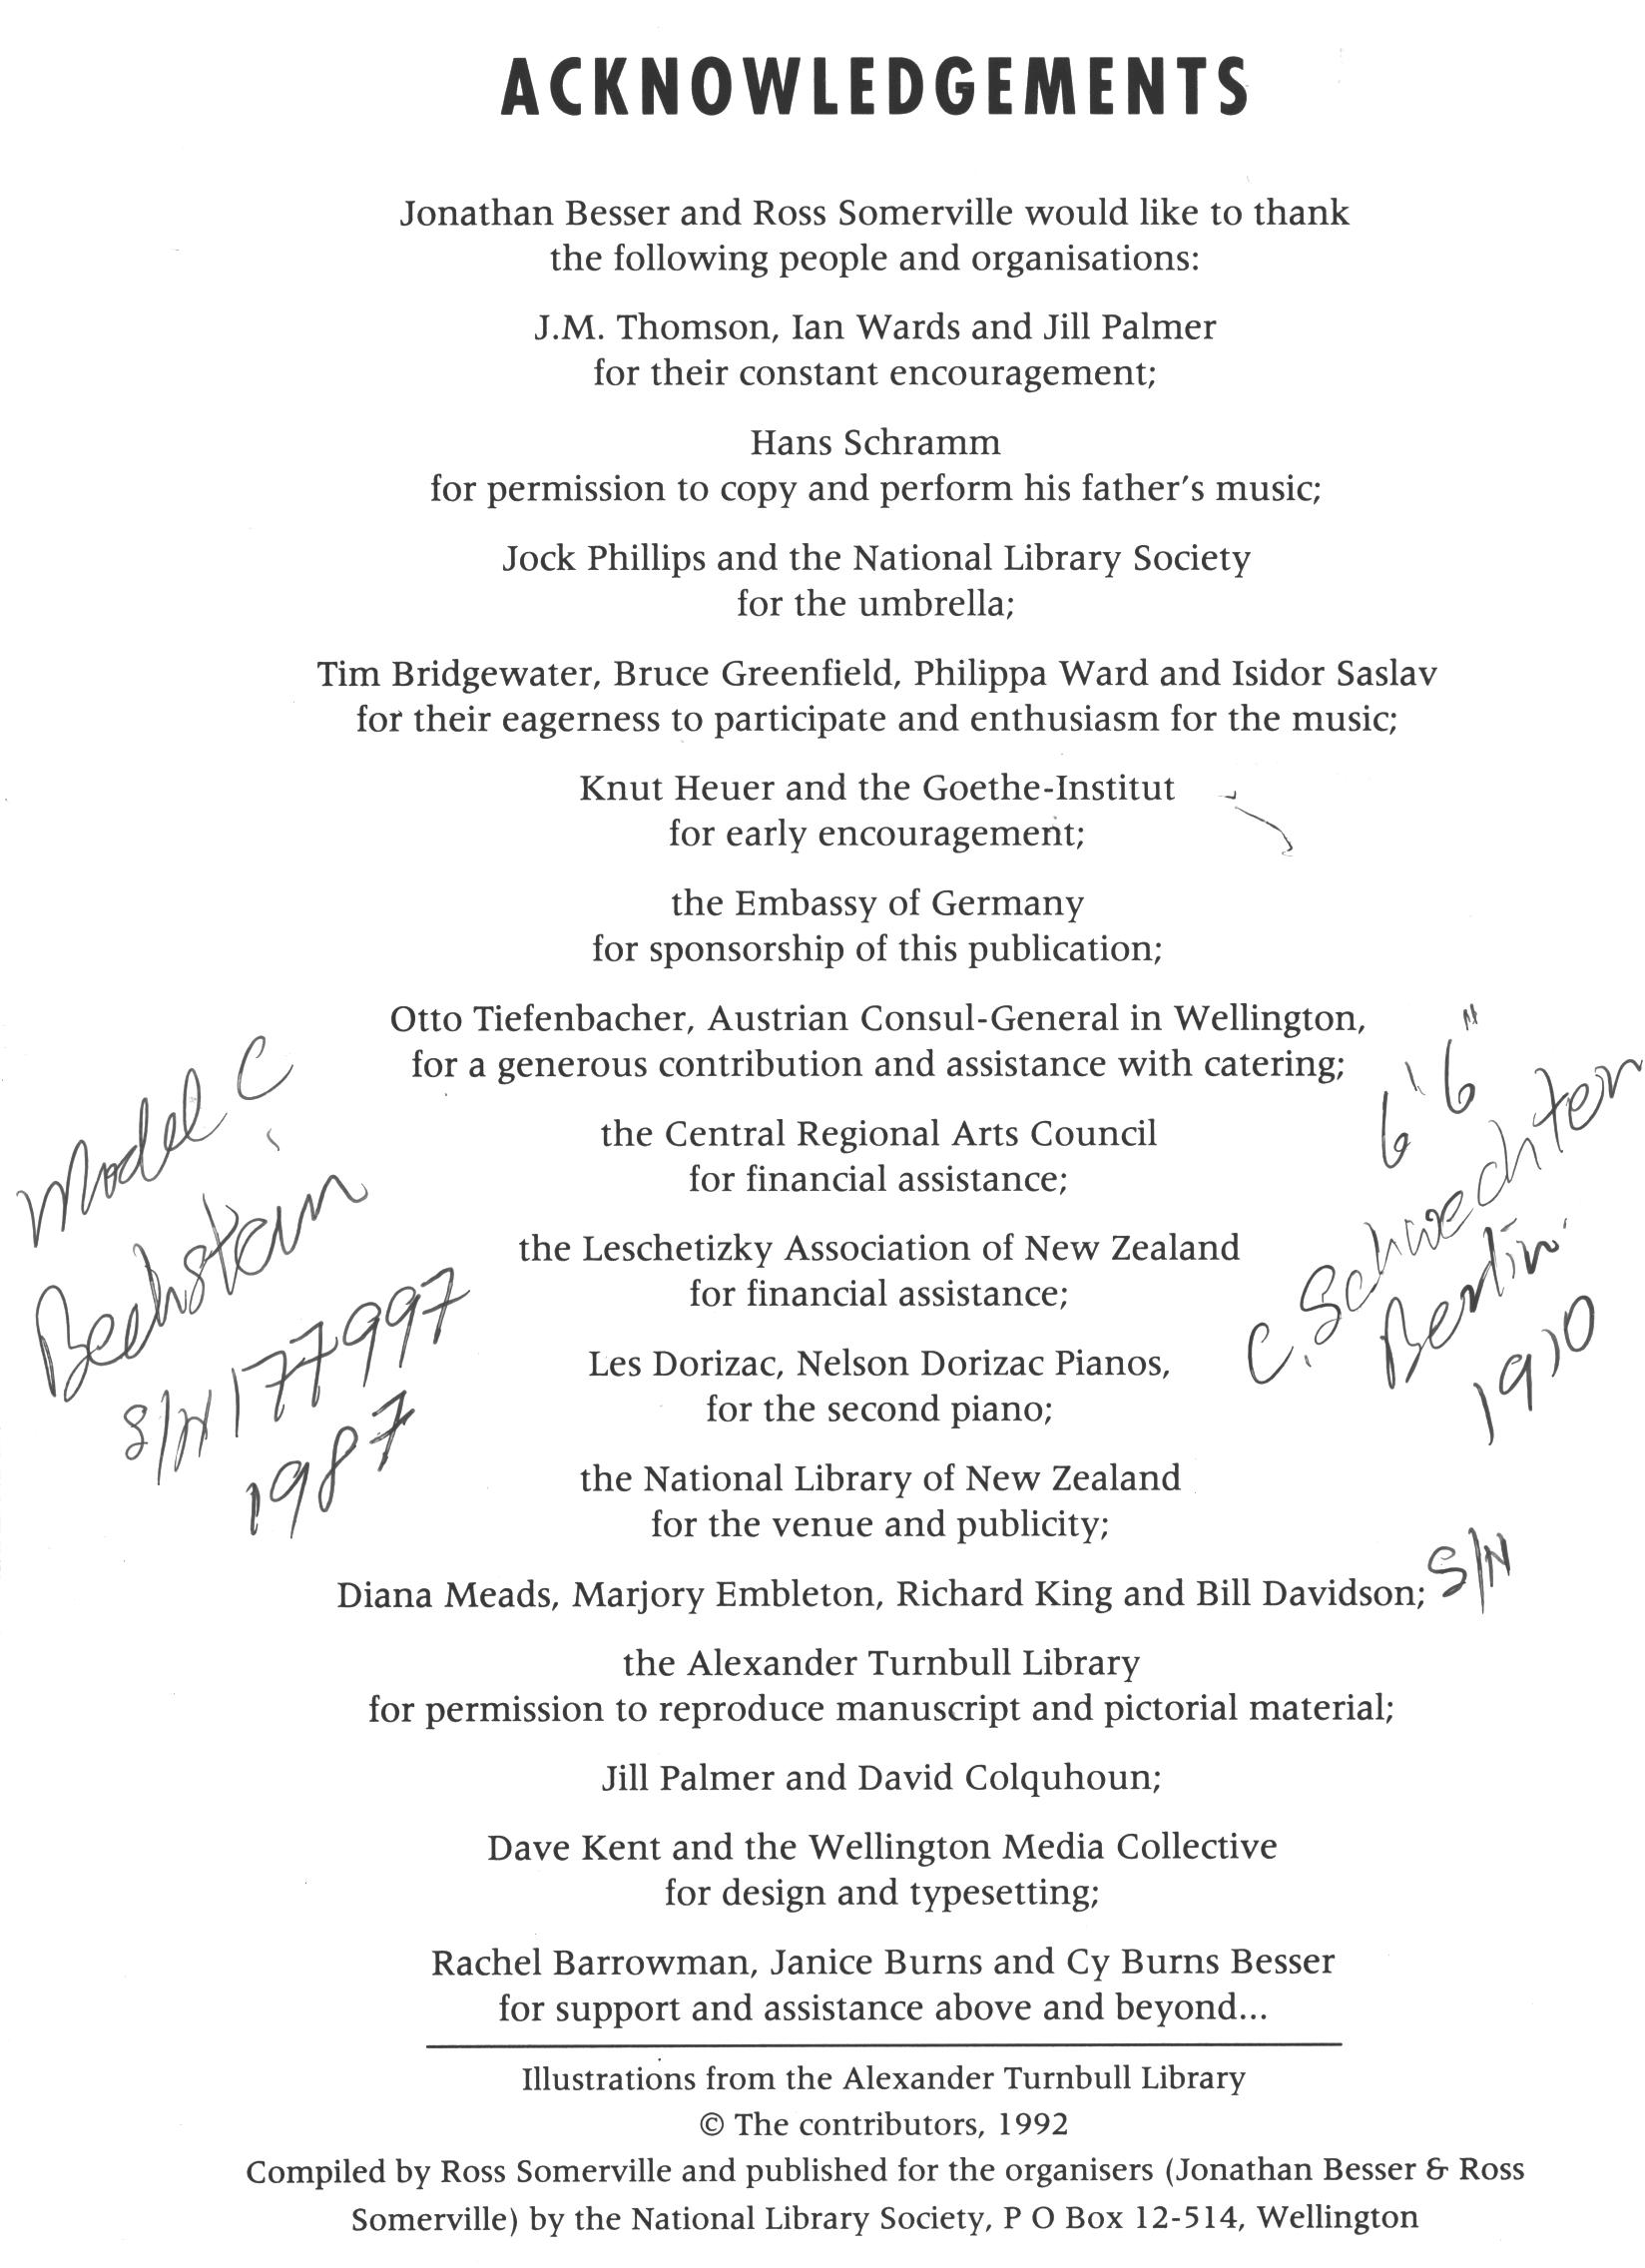 ACKNOWLEDGEMENTS
Jonathan Besser and Ross Somerville would like to thank
the following people and organisations:
J.M. Thomson, Ian Wards and Jill Palmer
for their constant encouragement;
Hans Schramm
for permission to copy and perform his father's music;
Jock Phillips and the National Library Society
for the umbrella;
Tim Bridgewater, Bruce Greenfield, Philippa Ward and Isidor Saslav
for their eagerness to participate and enthusiasm for the music;
Knut Heuer and the Goethe-Institut
for early encouragement;
the Embassy of Germany
for sponsorship of this publication;
Otto Tiefenbacher, Austrian Consul-General in Wellington,
for a generous contribution and assistance with catering;
the Central Regional Arts Council
for financial assistance;
the Leschetizky Association of New Zealand
for financial assistance;
Les Dorizac, Nelson Dorizac Pianos,
for the second piano;
the National Library of New Zealand
for the venue and publicity;
Diana Meads, Marjory Embleton, Richard King and Bill Davidson;
the Alexander Turnbull Library
for permission to reproduce manuscript and pictorial material;
Jill Palmer and David Colquhoun;
Dave Kent and the Wellington Media Collective
for design and typesetting;
Rachel Barrowman, Janice Burns and Cy Burns Besser
for support and assistance above and beyond...
Illustrations from the Alexander Turnbull Library
© The contributors, 1992
Compiled by Ross Somerville and published for the organisers (Jonathan Besser & Ross
Somerville) by the National Library Society, P O Box 12-514, Wellington
Model C
Bechstein
S/N 177997
1987
6'6"
C. Schwechten
Berlin
1910
S/N